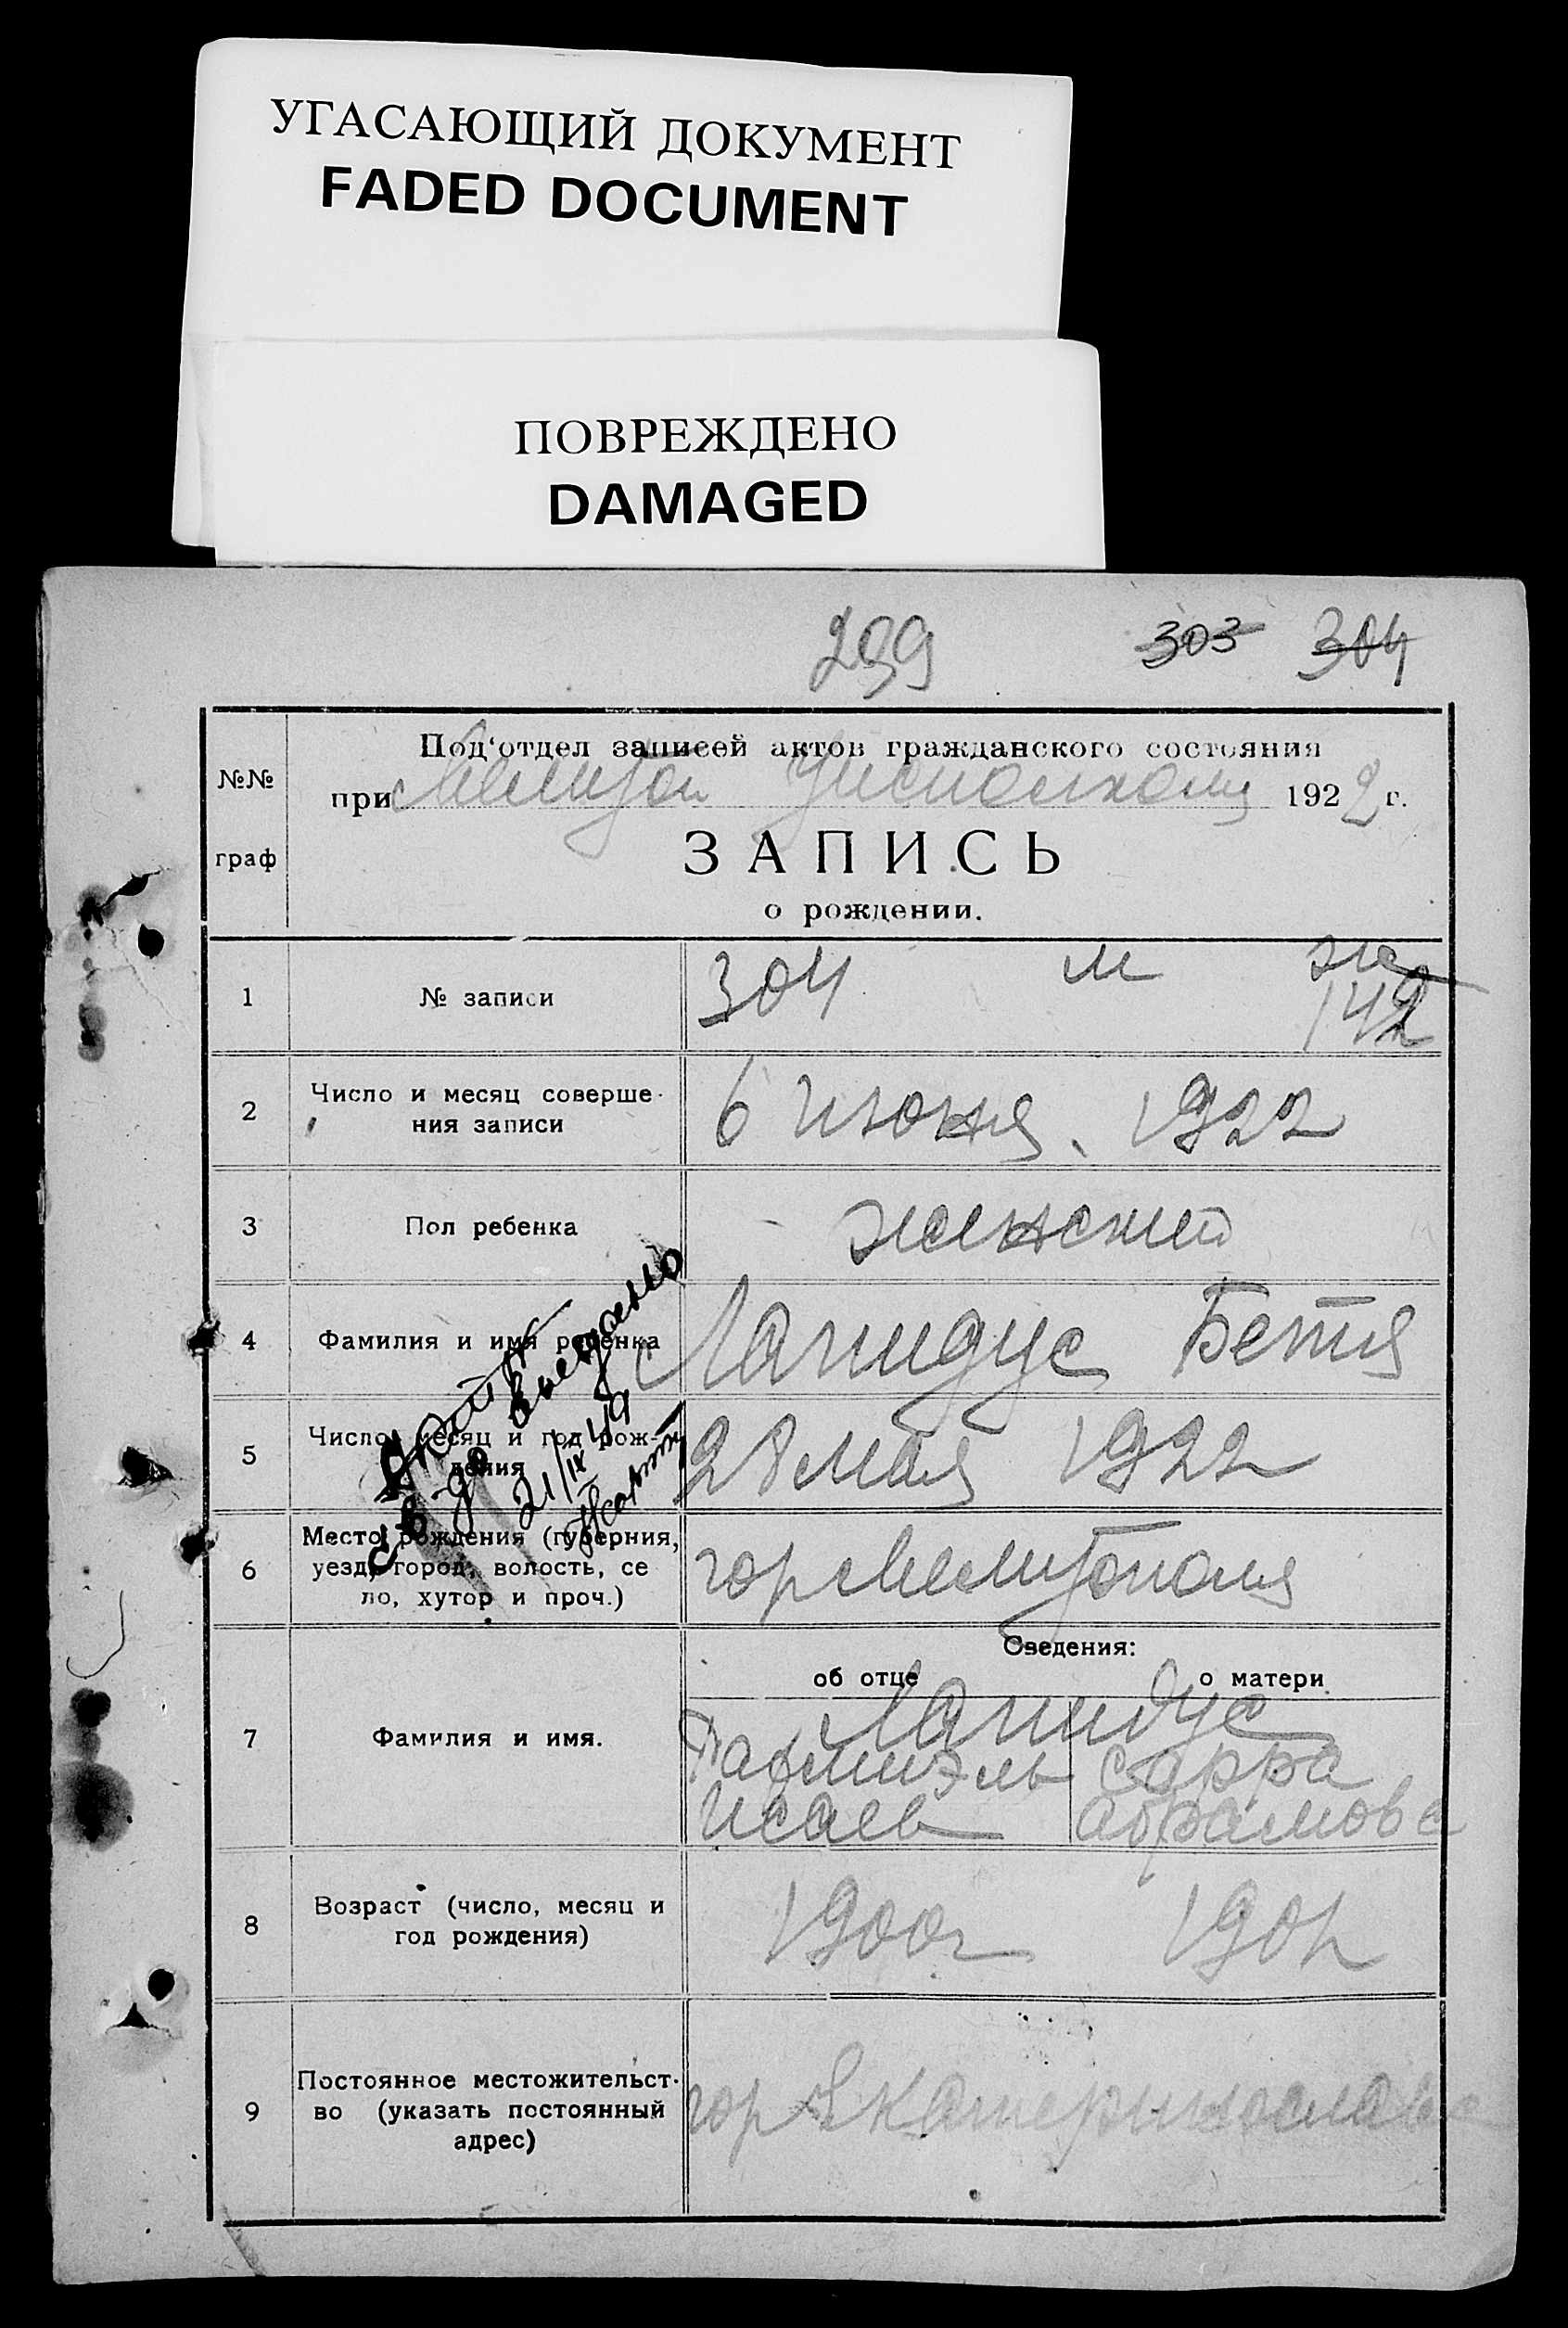 УГАСАЮЩИЙ ДОКУМЕНТ
FADED DOCUMENT
ПОВРЕЖДЕНО
DAMAGED
299 303 304
№№
граф
Под'отдел записей актов гражданского состояния
при Мелитоп Уисполкома 1922 г.
ЗАПИСЬ
о рождении.
1 № записи 304 м ж
142
2 Число и месяц соверше-
ния записи
6 июня 1922
3 Пол ребенка женский
4 Фамилия и имя ребенка Лапидус Бетя
5 Число, месяц и год рож-
дения
28 мая 1922
6 Место рождения (губерния,
уезд, город, волость, се
ло, хутор и проч.)
гор Мелитополя
св-до выездано
21/IX 49
Сведения:
об отце о матери
7 Фамилия и имя.
Лапидус
Сарра
Исаев Абрамова
8 Возраст (число, месяц и
год рождения)
1900г 1901г
9 Постоянное местожительст-
во (указать постоянный
адрес)
гор Екатеринослава